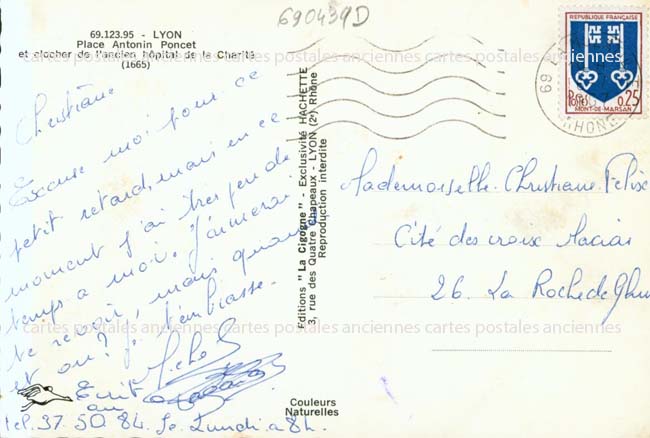 690439D
69.123.95 - LYON
Place Antonin Poncet
et clocher de l'ancien hôpital de la Charité
(1665)
Christiane
Excuse moi pour ce
petit retard, mais en ce
moment j'ai très peu de
temps a moi. J'aimerai
te revoir, mais quand
et ou? Je t'embrasse.
Michel
Ecrit
au
tel. 37.50.84. le Lundi a 8h.
Editions "La Cigogne" - Exclusivité HACHETTE
3, rue des Quatre Chapeaux - LYON (2e) Rhône
Reproduction interdite
Couleurs
Naturelles
REPUBLIQUE FRANÇAISE
Postes 0,25
MONT-DE-MARSAN
69
RHONE
Mademoiselle Christiane Felix
Cité des croix
26. La Roche de Glun
cartes postales anciennes cartes postales anciennes cartes postales anciennes
cartes postales anciennes cartes postales anciennes cartes postales anciennes